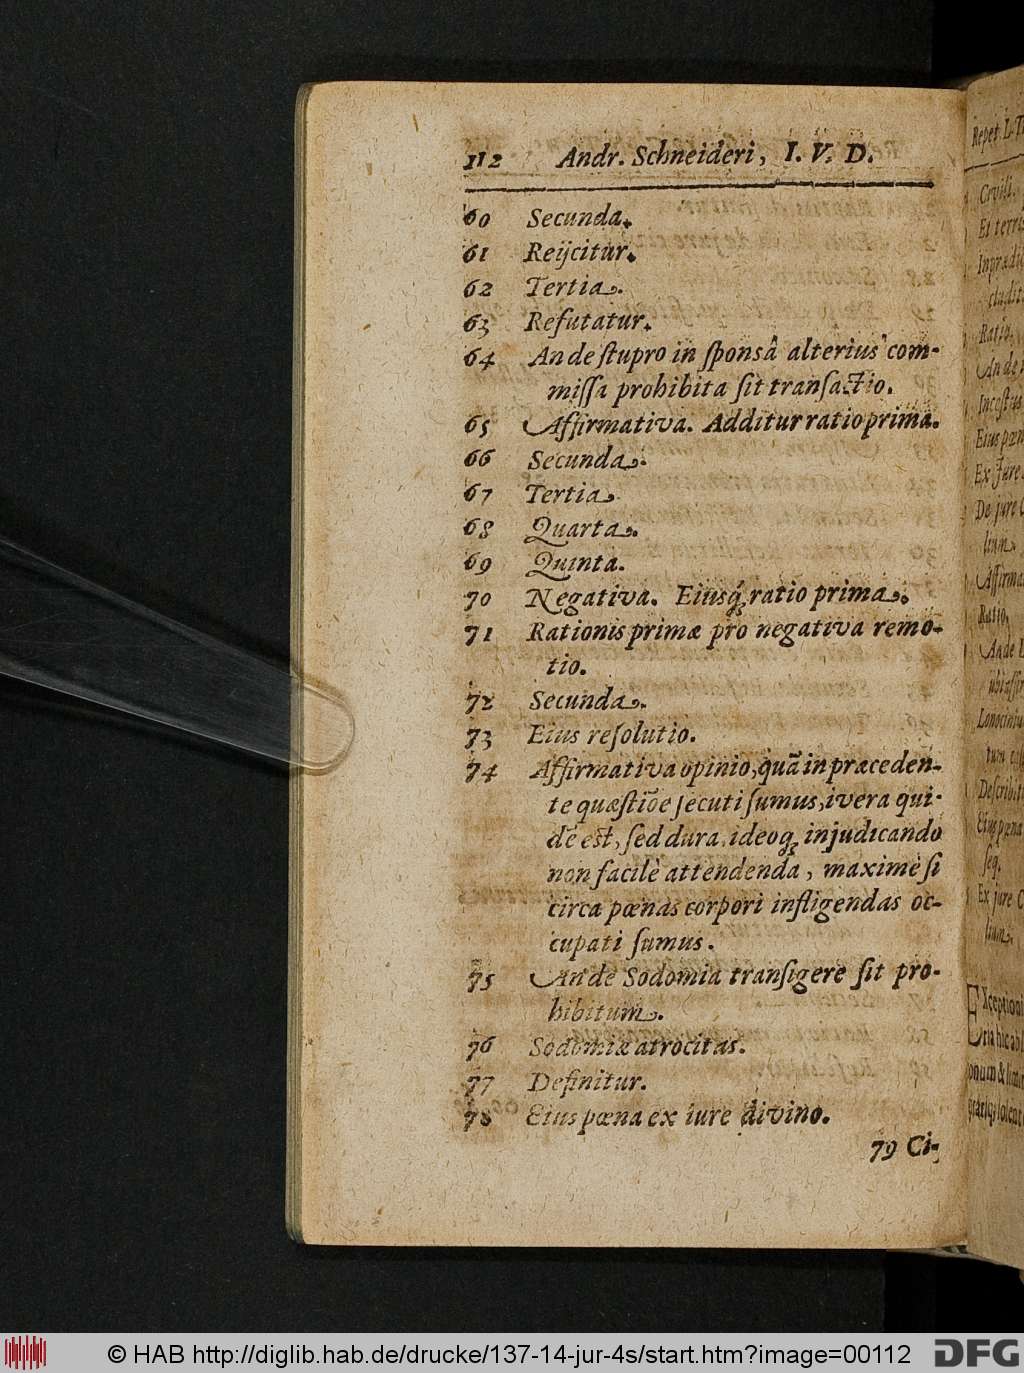 112 Andr. Schneideri, I. V. D.
60 Secunda.
61 Reijcitur.
62 Tertia.
63 Refutatur.
64 An de ſtupro in ſponsâ alterius com-
miſſa prohibita ſit tranſactio.
65 Affirmativa. Additur ratio prima.
66 Secunda.
67 Tertia.
68 Quarta.
69 Quinta.
70 Negativa. Eiusq́ꝫ ratio prima.
71 Rationis primæ pro negativa remo-
tio.
72 Secunda.
73 Eius reſolutio.
74 Affirmativa opinio, quã in præceden-
te quæſtiõe ſecuti ſumus, vera qui-
dẽ est, ſed dura, ideoqꝫ in judicando
non facilè attendenda, maximè ſi
circa pœnas corpori infligendas oc-
cupati ſumus.
75 An de Sodomia tranſigere ſit pro-
hibitum.
76 Sodomiæ atrocitas.
77 Definitur.
78 Eius pœna ex iure divino.
79 Ci-
Repet. L. T
Civili.
Et terr
Inprædi
cludit
Ratio.
An de
Inceſtus
Eius pœn
Ex Jure
De jure C
lium.
Affirma
Ratio.
An de
ubi aſſir
Lenociniu
tum
Deſcribit
Eius pœna
ſeq.
Ex jure C
lium.
Exceptioni
ria huc abl
© HAB http://diglib.hab.de/drucke/137-14-jur-4s/start.htm?image=00112
DFG